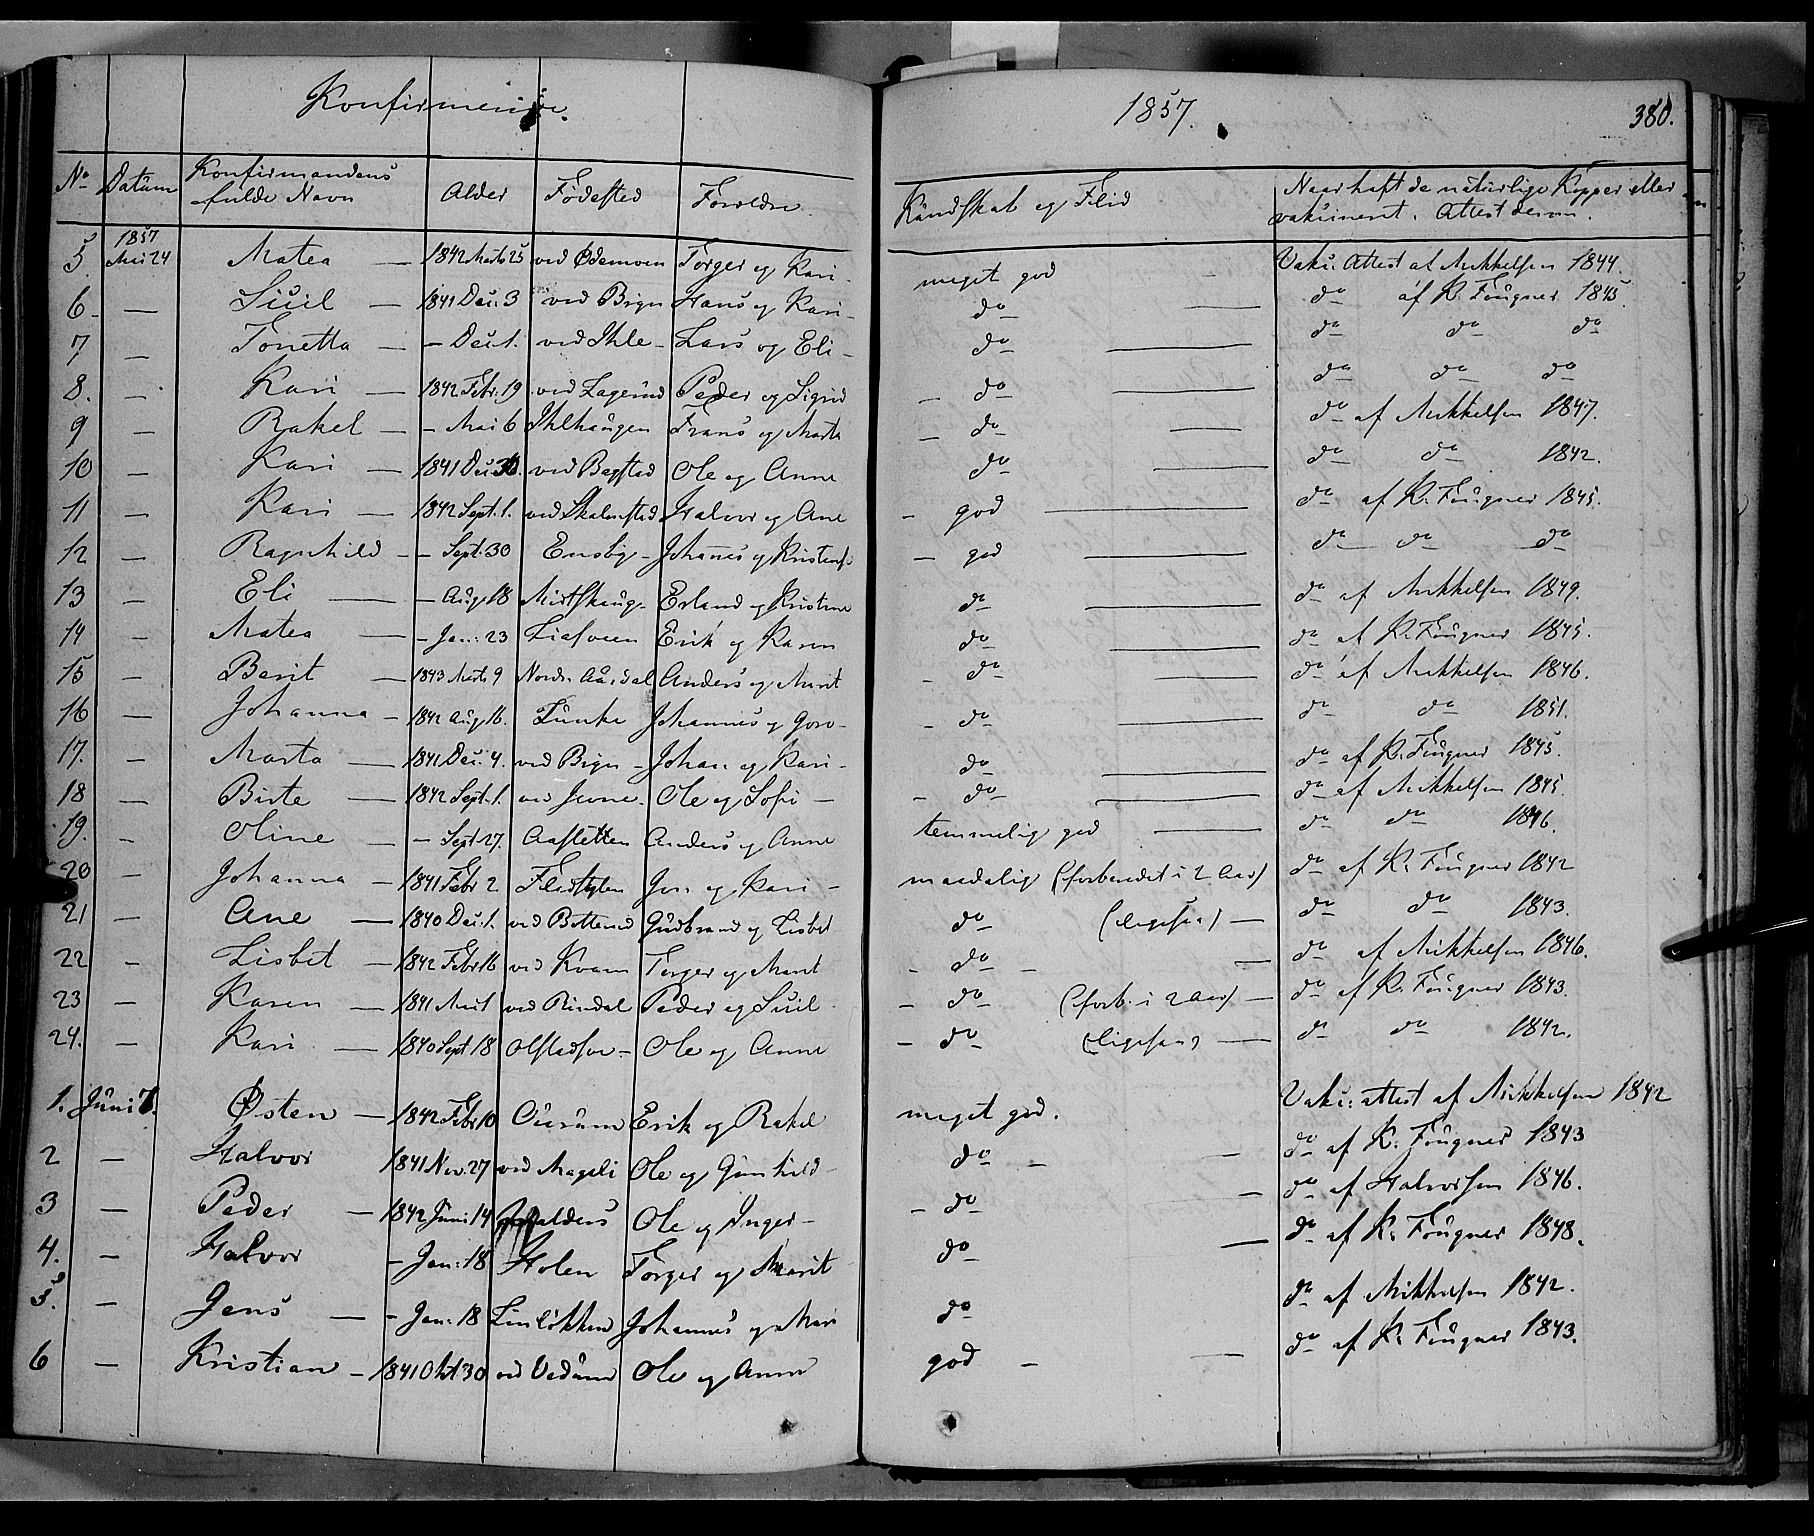 Konfirmerede. 1857. 380.
No Datum Konfirmandens fulde Navn Alder Fødested Forældre Kundskab og Flid Naar haft de naturlige Kopper eller vaksineret. Attest derom.
5. 1857 Mai 24 Matea — 1842 Marts 25 ved Ødemoen Torger og Kari - meget god — Vaks: Attest af Mikkelsen 1844.
6. — Siril — 1841 Des: 3 ved Bign Hans og Kari - do — do af K. Fougner 1845.
7 — Tonetta — - Des: 1. ved Ihle - Lars og Eli - do — do do do
8. — Kari — 1842 Febr. 19 ved Lagerud Peder og Sigrid - do — do do do
9 — Rakel — - Mai 6 Ihlhaugen Frans og Marta - do — do af Mikkelsen 1847.
10 — Kari — 1841 Des: 30. ved Bagstad Ole og Anne do — do do 1842.
11 — Kari — 1842 Sept. 1. ved Skalmstad Halvor og Ane - god — do af K. Fougner 1845.
12 — Ragnhild - - Sept: 30 Ensby - Johannes og Kristense - god — do do do
13 — Eli — - Aug. 18 Mistskaug - Erland og Kristine do — do af Mikkelsen 1849.
14 — Matea — - Jan: 23 Liasveen Erik og Karen do — do af K. Fougner 1845.
15 — Berit — 1843 Marts 9 Nordr. Aurdal Anders og Marit - do — do af Mikkelsen 1846.
16 — Johanna - 1842 Aug. 16. Lunke Johannes og Goro - - do — do do 1851.
17. — Marta — 1841 Des: 4. ved Bign - Johan og Kari - do — do af K. Fougner 1845.
18 — Birte — 1842 Sept. 1. ved Jevne - Ole og Sofi - - do — do af Mikkelsen 1845.
19. — Oline — - Sept 27. Aasletten Anders og Anne temmelig god — do do 1846.
20 — Johanna - 1841 Febr 2 Flidstyten Jon og Kari - maadelig (forberedet i 2 Aar) do af K. Fougner 1842
21 — Ane — 1840 Des: 1. ved Botterud Gudbrand og Lisbet do (ligesaa) — do do 1843.
22 — Lisbet — 1842 Febr 16 ved Kvam Torger og Marit - do - — do af Mikkelsen 1846.
23 — Karen — 1841 Mai 1 ved Rindal Peder og Siril - do (forb: i 2 Aar) — do af K. Fougner 1843.
24. — Kari — 1840 Sept 18 Olstad - Ole og Anne - do (ligesaa) — do do 1842.
1. Juni 7. Østen — 1842 Febr 10 Ole og Rakel meget god. Vaks: attest af Mikkelsen 1842
2 — Halvor 1841 Nov. 27 ved Mageli Ole og Gunhild - do - — do af K. Fougner 1843
3 — Peder — 1842 Juni 14 Ole og Inger - - do — do af Halvorsen 1846.
4. — Halvor - Jan: 18 Holen Torger og Marit do — do af K. Fougner 1848.
5. — Jens — - Jan: 18 Linløkken Johannes og Mari do do af Mikkelsen 1842.
6 — Kristian - 1841 Okt 30 ved Vedum Ole og Anne god - — do af K. Fougner 1843.